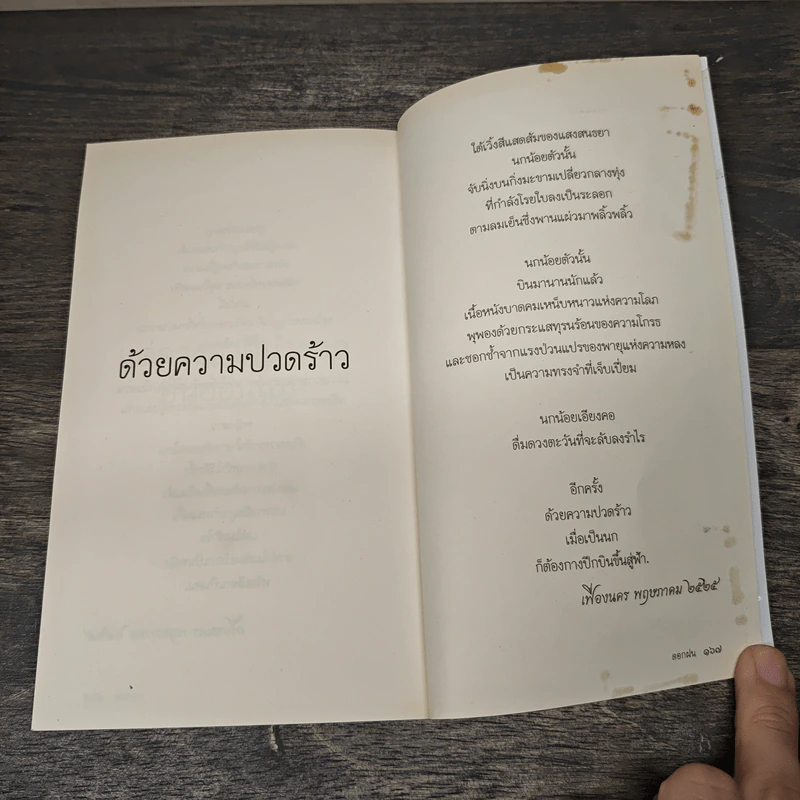 ด้วยความปวดร้าว
ใต้เวิ้งสีแสดส้มของแสงสนธยา
นกน้อยตัวนั้น
จับนิ่งบนกิ่งมะขามเปลี่ยวกลางทุ่ง
ที่กำลังโรยใบลงเป็นระลอก
ตามลมเย็นซึ่งพานแผ่วมาพลิ้วพลิ้ว
นกน้อยตัวนั้น
บินมานานนักแล้ว
เนื้อหนังบาดคมเหน็บหนาวแห่งความโลภ
พุพองด้วยกระแสทุรนร้อนของความโกรธ
และชอกช้ำจากแรงป่วนแปรของพายุแห่งความหลง
เป็นความทรงจำที่เจ็บเปี่ยม
นกน้อยเอียงคอ
ดื่มดวงตะวันที่จะลับลงรำไร
อีกครั้ง
ด้วยความปวดร้าว
เมื่อเป็นนก
ก็ต้องกางปีกบินขึ้นสู่ฟ้า.
เฟื่องนคร พฤษภาคม ๒๕๒๕
ดอกฝน ๑๖๗